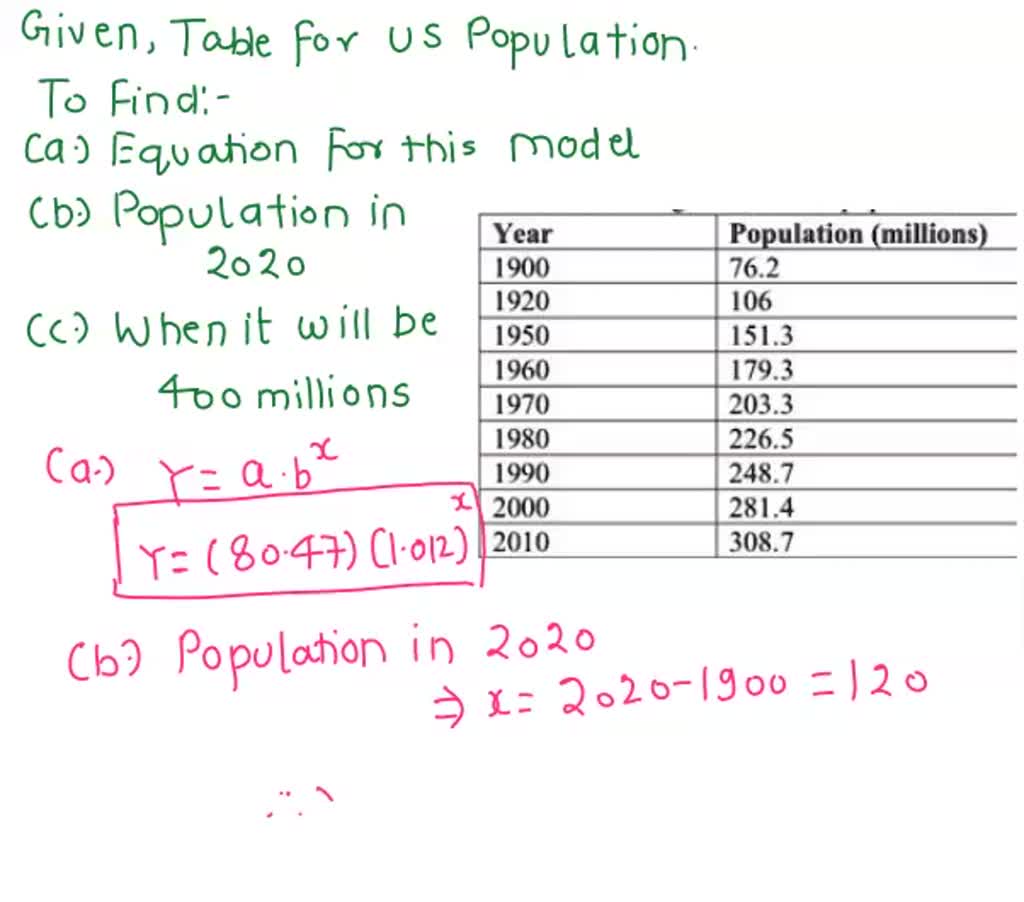 Given, Table for US Population.
To Find:-
(a.) Equation for this model
(b.) Population in
2020
(c.) When it will be
400 millions
Year Population (millions)
1900 76.2
1920 106
1950 151.3
1960 179.3
1970 203.3
1980 226.5
1990 248.7
2000 281.4
2010 308.7
(a.) Y = a.b^x
Y = (80.47) (1.012)^x
(b.) Population in 2020
⇒ x = 2020-1900 = 120
∴